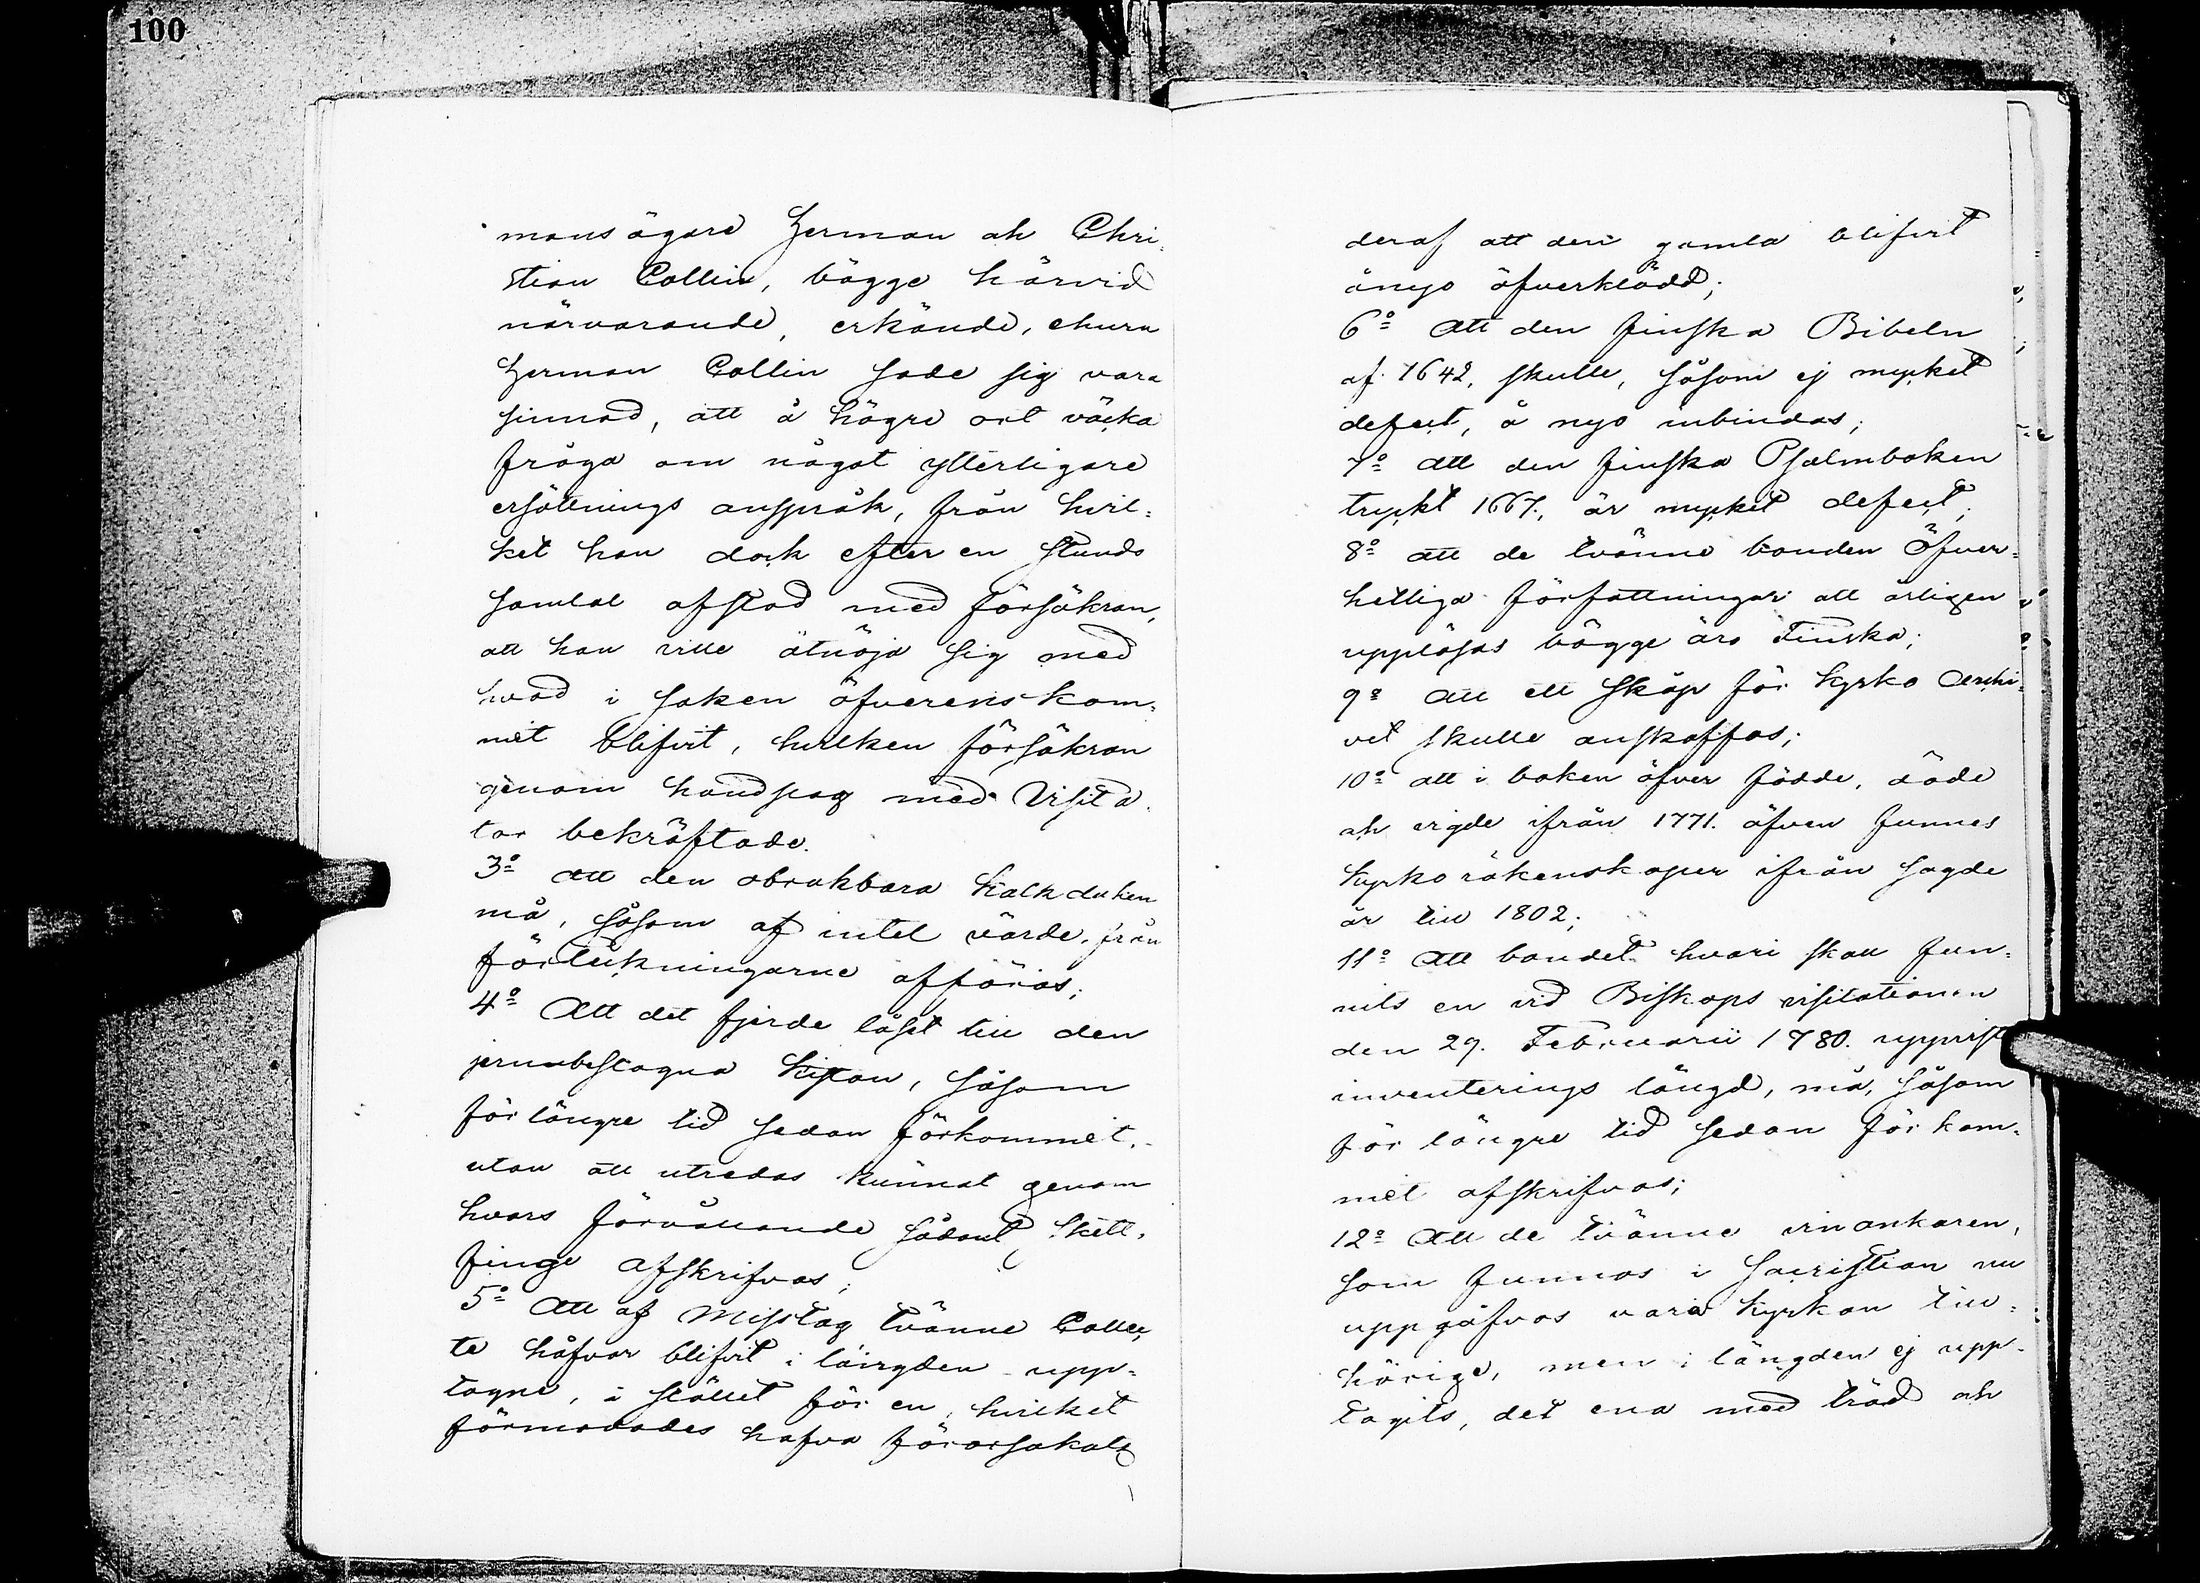 100
mansägare Herman ah Chri-
stian Collin, bägge härvid
närvarande, erkände, ehuru
Herman Collin sade sig vara
sinnad, att å högre ort väcka
fråga om något ytterligare
ersättnings anspråk, från hvil-
ket han dock efter en stunds
samtal afstod med försäkran,
att han ville åtnöja sig med
hvad i saken öfverenskom-
mit blifvit, hvilken försäkran
genom handslag med Visita-
tor bekräftade.
3o Att den obrukbara Kalkduken
må, såsom af intet värde, från
förteckningarne afföras;
4o Att det fjerde låset till den
jernbeslagna Kistan, såsom
för längre tid sedan förkommit,
utan att utredas kunnat genom
hvars förvållande sådant skett,
finge afskrifvas;
5o Att af Misstag tvänne Collec-
te håfvar blifvit i längden upp-
tagne, i stället för en, hvilket
förmodades hafva förorsakats
deraf att den gamla blifvit
ånyo öfverklädd;
6o Att den finska Bibeln
af 1642, skulle, såsom ej mycket
defect, å nyo inbindas;
7o Att den finska Psalmboken
tryckt 1667., är mycket defect;
8o Att de tvänne banden Öfver-
hetliga författningar att årligen
uppläsas bägge äro Finska;
9o Att ett skåp för Kyrko Archi-
vet skulle anskaffas;
10o Att i boken öfver födde, döde
ah vigde ifrån 1771. äfven funnes
Kyrkoräkenskaper ifrån sagde
år till 1802;
11o Att bandet hvari skall fun-
nits en vid Biskops visitationen
den 29. Februarii 1780. upprist
inventerings längd, må, såsom
för längre tid sedan förkom-
mit afskrifvas;
12o Att de tvänne vinankaren,
som funnos i Sacristian nu
uppgåfvos vara Kyrkan till-
hörige, men i längden ej upp-
tagits, det ena med träd ah